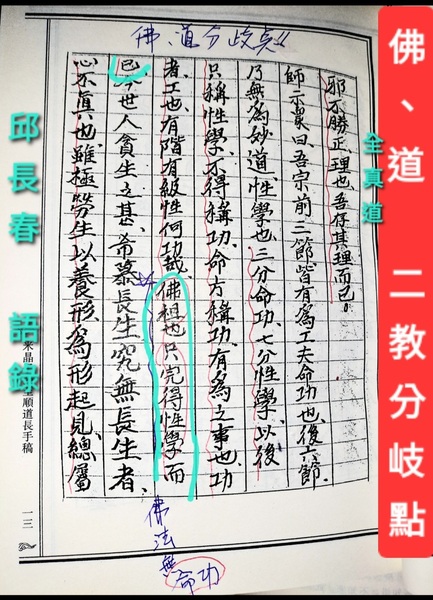 佛、道 二教分岐點
全真道
佛、道分歧
邪不勝正、理也、吾存其理而已。
師示眾曰、吾宗前三節皆有為工夫命功也、後六節、
乃無為妙道、性學也、三分命功、七分性學、以後
只稱性學、不得稱功、命方稱功、有為之事也、功
者工也、有階有級、性何功哉、佛祖也只完得性學而
已、今世人貪生之甚、希慕長生、究無長生者、
心不真也、雖極勞生以養形、為形起見、總屬
邱長春 語錄
米晶
順道長手稿
一三
佛法無命功